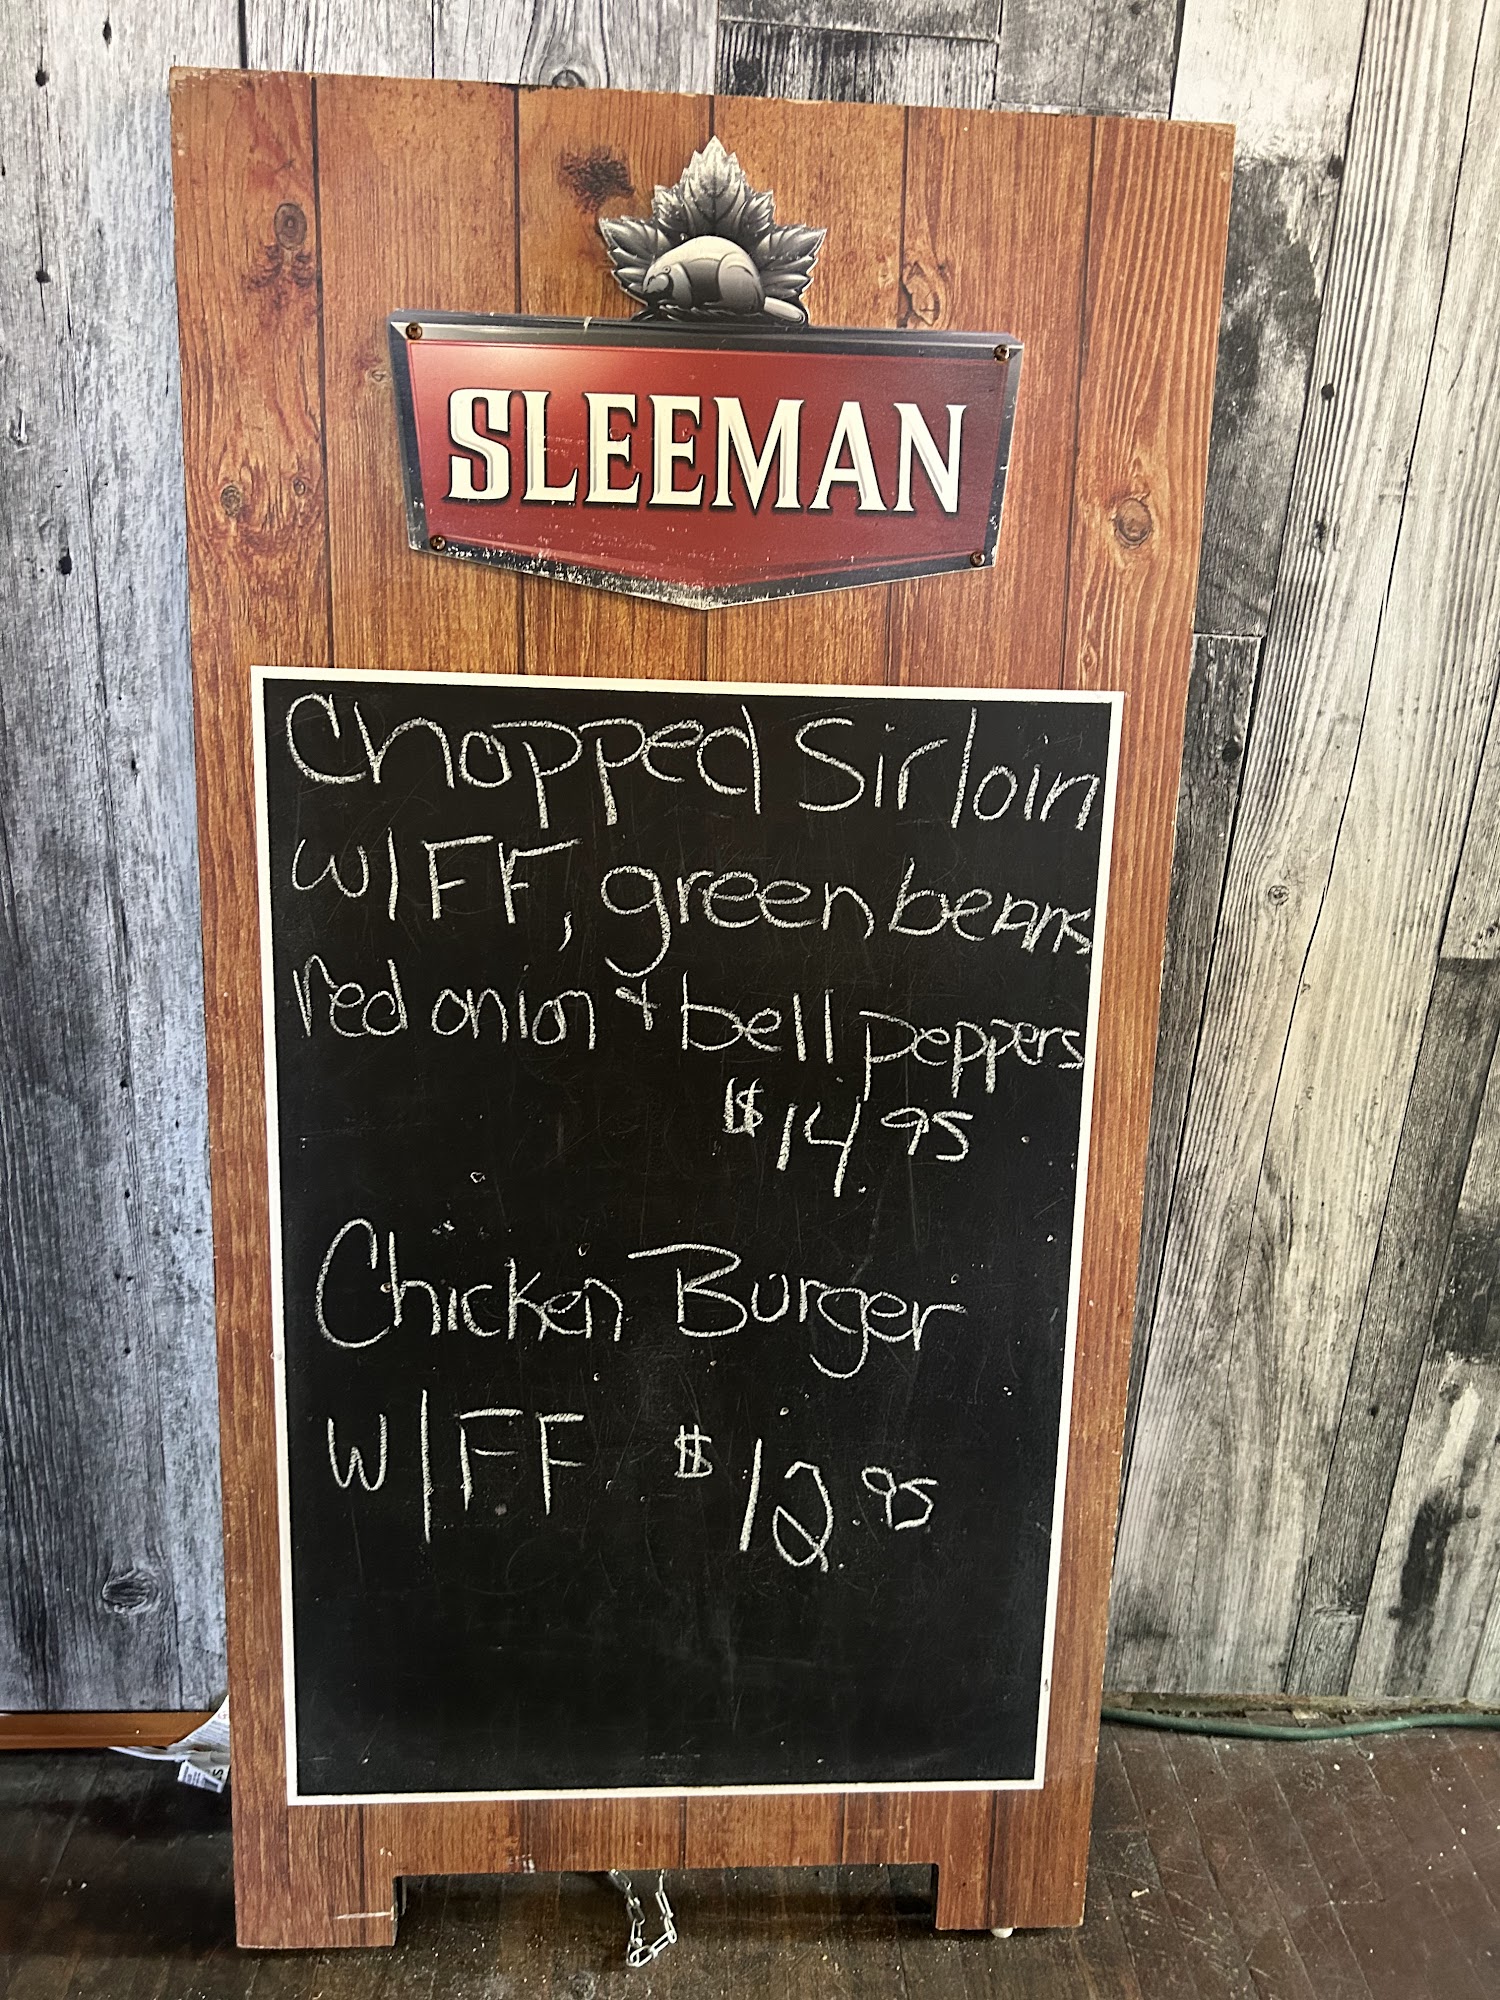 SLEEMAN
Chopped Sirloin
W/FF, green beans
red onion + bell peppers
$14.95
Chicken Burger
W/FF $12.95